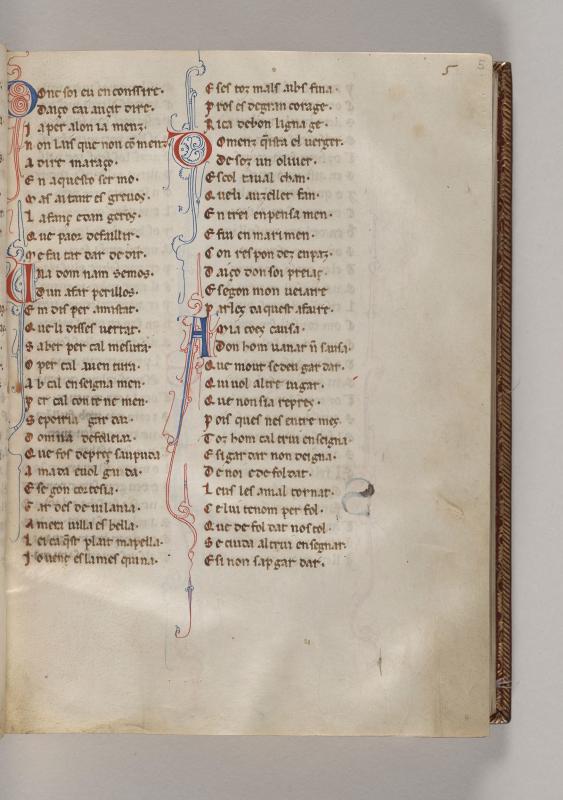 5
Donc soi eu en conssire.
Daiço cai auçit dire.
Ia per alon ia menz.
non lais que non cō menz
A dire maraço.
En aquesto ser mo.
Mas aitant es greuos.
La fanç e dan geros.
Que paor de faillir.
Me fai tar dar de dir.
Una dom nam semos.
Dun afar perillos.
Em dis per amistat.
Queli disses uertat.
Saber per cal mesura.
O per cal auen tura.
Ab cal enseigna men.
Per cal con te ne men.
Se poiria gar dar
Domna de folleiar.
Que fos de preç saupuda
Amada e uol gu da.
Ese gon cortesia.
Gar des de uilania.
A mei uilla es bella.
Lei ca q̄st plait mapella.
Iouent es la mes quina.
Eses toz mals aibs fina.
Pros es de gran corage.
Rica de bon ligna ge.
Comenz qista el uerger.
De soz un oliuer.
Escol taual chan.
Queli auzellet fan.
En trei en pensa men.
E fui en mari men.
Con res pon dez en paz.
Daiço don soi preiaç.
E segon mon ueiaire
Parleç da quest afaire.
Amia coeç causa.
Don hom uanar n̄ sausa.
Que mout se deu gar dar.
Qui uol altre iugar.
Que non sia represʒ.
Pois ques nes entre mes.
Toz hom cal trui enseigna
E si gar dar non deigna.
De noi e de fol dat.
Leus les amal tornat.
Celui tenom per fol.
Que de fol dat nos tol.
Se cuida altrui en segnar.
E si non sap gar dar.